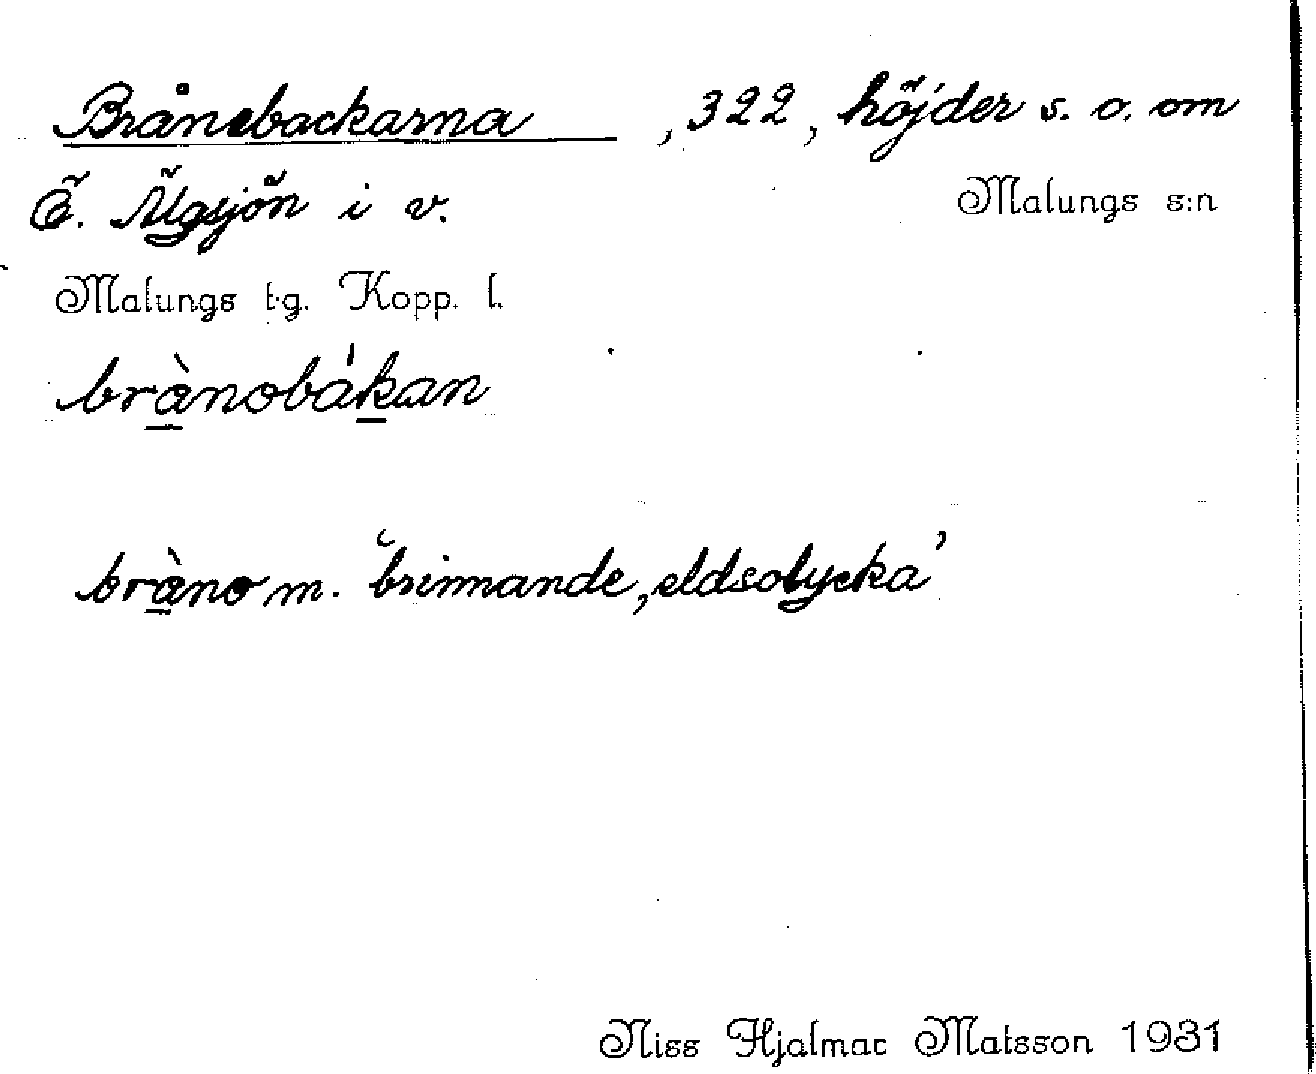 Brånebackarna, 322, höjder s. o. om
Ö. Älgsjön i v. Malungs s:n
Malungs t.g. Kopp. l.
brànobákan
bràno m. ‘brinnande, eldsolycka’
Niss Hjalmar Matsson 1931